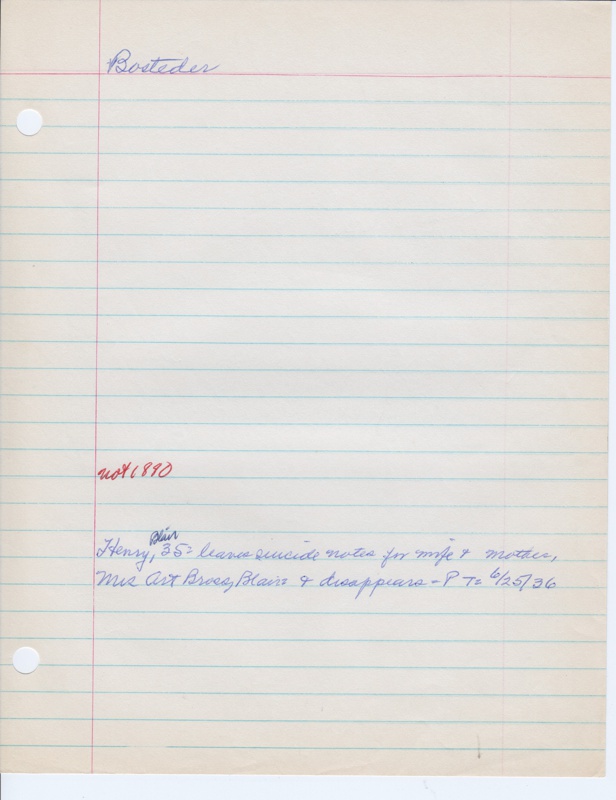 Bosteder
not 1890
Blair
Henry, 35 = leaves suicide notes for wife & mother,
Mrs Art Broes, Blair = & disappears - P T = 6/25/36